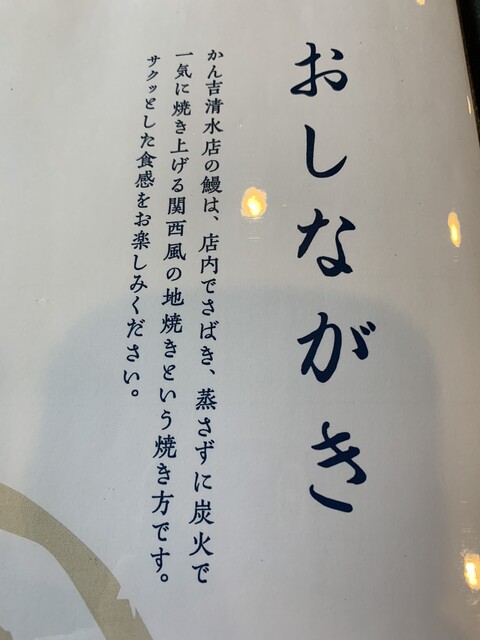 おしながき
かん吉清水店の鰻は、店内でさばき、蒸さずに炭火で
一気に焼き上げる関西風の地焼きという焼き方です。
サクッとした食感をお楽しみください。